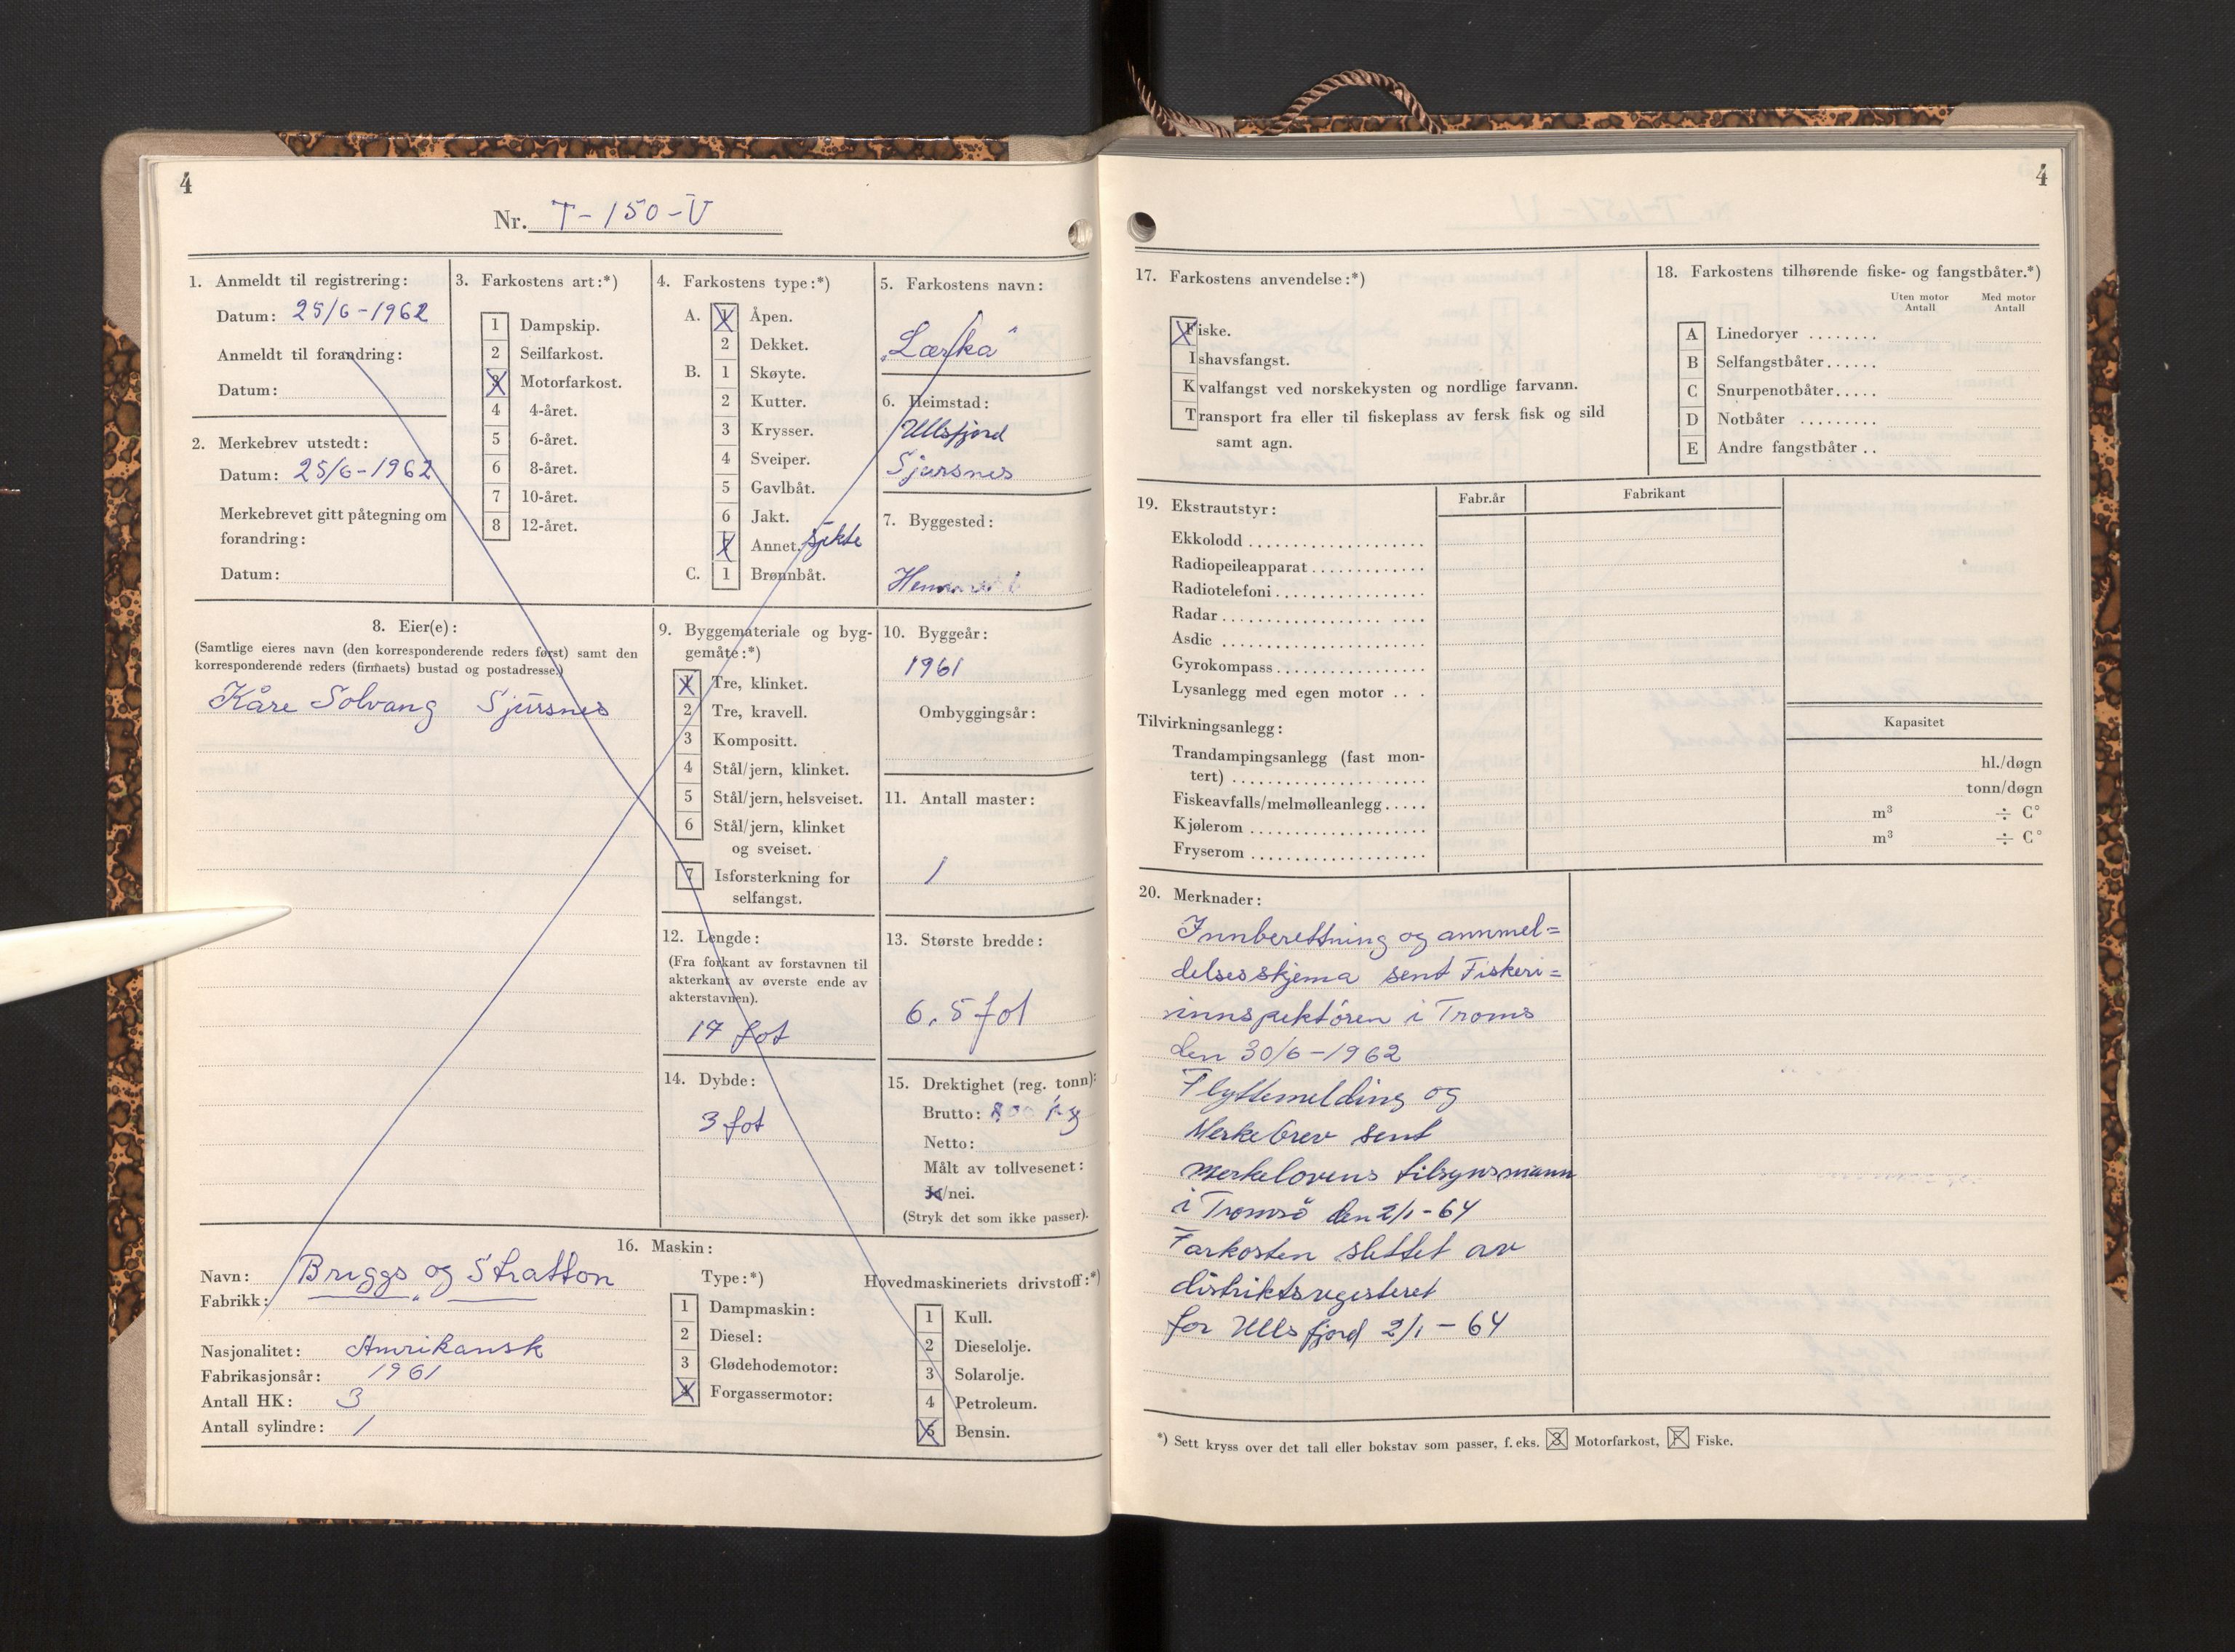 4
Nr. T-150-U
1. Anmeldt til registrering:
Datum: 25/6-1962
Anmeldt til forandring:
Datum:
2. Merkebrev utstedt:
Datum: 25/6-1962
Merkebrevet gitt påtegning om
forandring:
Datum:
3. Farkostens art:*)
1 Dampskip.
2 Seilfarkost.
3 Motorfarkost.
4 4-året.
5 6-året.
6 8-året.
7 10-året.
8 12-året.
4. Farkostens type:*)
A. 1 Åpen.
2 Dekket.
B. 1 Skøyte.
2 Kutter.
3 Krysser.
4 Sveiper.
5 Gavlbåt.
6 Jakt.
7 Annet. Sjekte
C. 1 Brønnbåt.
5. Farkostens navn:
„Lærka"
6. Heimstad:
Ullsfjord
Sjursnes
7. Byggested:
8. Eier(e):
(Samtlige eieres navn (den korresponderende reders først) samt den
korresponderende reders (firmaets) bustad og postadresse.)
Kåre Solvang Sjursnes
9. Byggemateriale og byg-
gemåte:*)
1 Tre, klinket.
2 Tre, kravell.
3 Kompositt.
4 Stål/jern, klinket.
5 Stål/jern, helsveiset.
6 Stål/jern, klinket
og sveiset.
7 Isforsterkning for
selfangst.
10. Byggeår:
1961
Ombyggingsår:
11. Antall master:
1
12. Lengde:
(Fra forkant av forstavnen til
akterkant av øverste ende av
akterstavnen).
17 fot
13. Største bredde:
6,5 fot
14. Dybde:
3 fot
15. Drektighet (reg. tonn):
Brutto: 800 kg
Netto:
Målt av tollvesenet:
Ja/nei.
(Stryk det som ikke passer).
16. Maskin:
Navn: Briggs og Stratton
Fabrikk: "
Nasjonalitet: Amrikansk
Fabrikasjonsår: 1961
Antall HK: 3
Antall sylindre: 1
Type:*)
1 Dampmaskin:
2 Diesel:
3 Glødehodemotor:
4 Forgassermotor:
Hovedmaskineriets drivstoff:*)
1 Kull.
2 Dieselolje.
3 Solarolje.
4 Petroleum.
5 Bensin.
4
17. Farkostens anvendelse:*)
Fiske.
Ishavsfangst.
Kvalfangst ved norskekysten og nordlige farvann.
Transport fra eller til fiskeplass av fersk fisk og sild
samt agn.
18. Farkostens tilhørende fiske- og fangstbåter.*)
Uten motor Med motor
Antall Antall
A Linedoryer ........
B Selfangstbåter......
C Snurpenotbåter.....
D Notbåter .........
E Andre fangstbåter ..
19. Ekstrautstyr:
Fabr.år Fabrikant
Ekkolodd ....................
Radiopeileapparat .............
Radiotelefoni.................
Radar .......................
Asdic .......................
Gyrokompass.................
Lysanlegg med egen motor ...
Tilvirkningsanlegg:
Kapasitet
Trandampingsanlegg (fast mon-
tert) ...................... hl./døgn
Fiskeavfalls/melmølleanlegg..... tonn/døgn
Kjølerom .................... m³ ÷ C°
Fryserom .................... m³ ÷ C°
20. Merknader:
Innberettning og annmel=
delsesskjema sent Fiskeri=
innspektören i Troms
den 30/6-1962
Flyttemelding og
Merkebrev sent
merkelovens tilsynsmann
i Tromsö den 2/1-64
Farkosten slettet av
distriktsregisteret
for Ullsfjord 2/1-64
*) Sett kryss over det tall eller bokstav som passer, f. eks. 3 Motorfarkost, F Fiske.